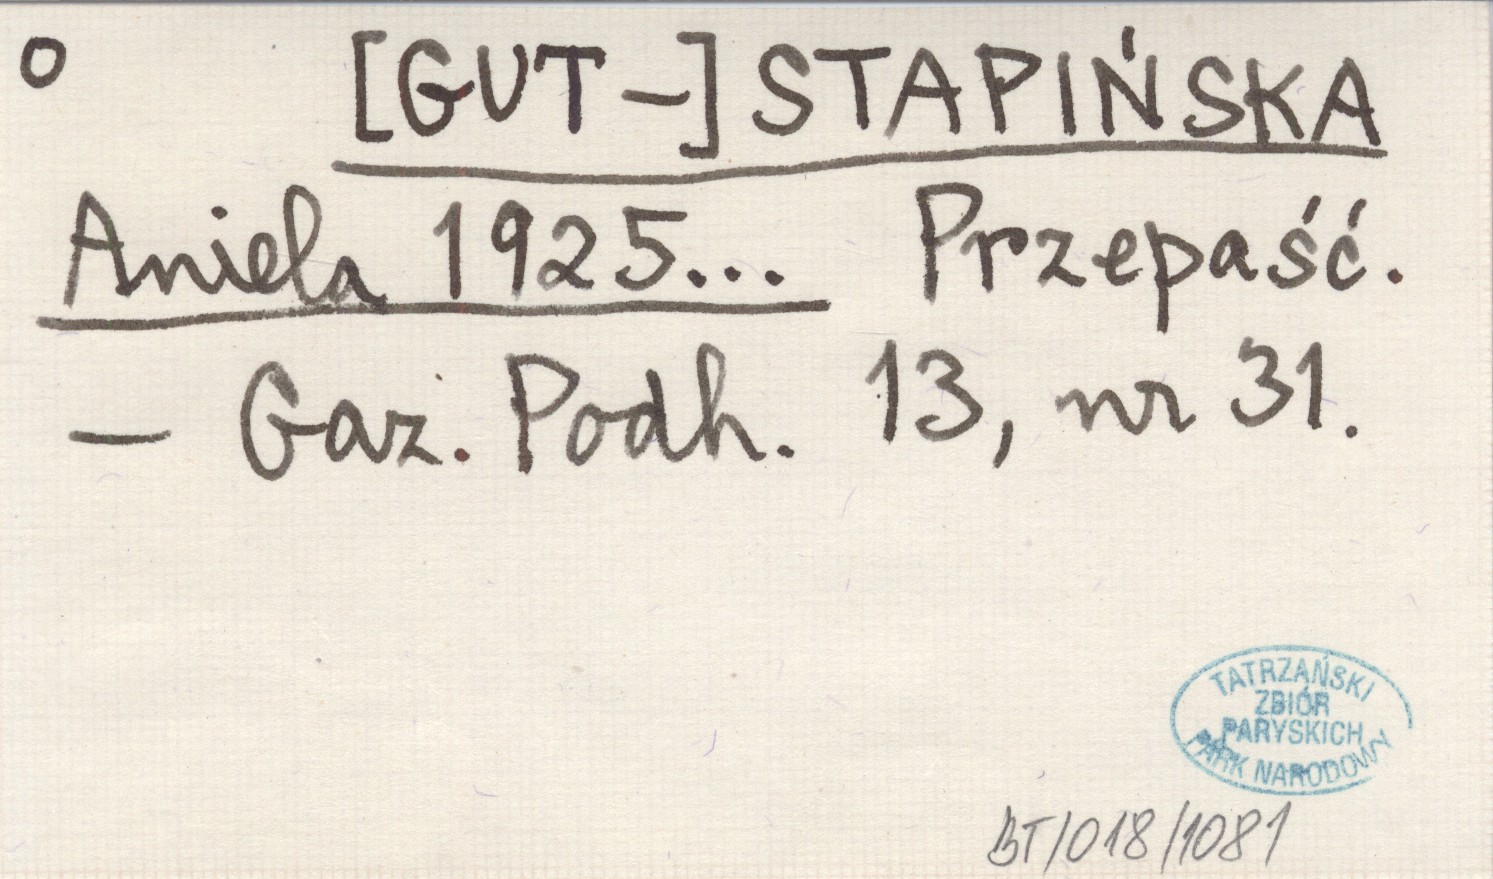 o [GUT-] STAPIŃSKA
Aniela 1925... Przepaść.
— Gaz. Podh. 13, nr 31.
TATRZAŃSKI
ZBIÓR
PARYSKICH
PARK NARODOWY
BT/018/1081